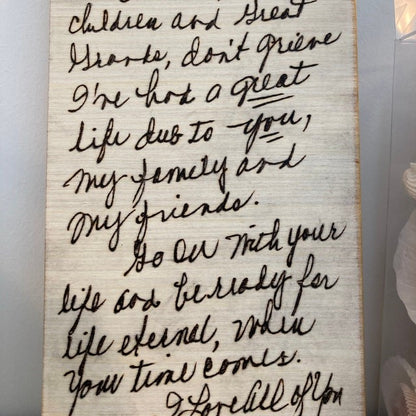 children and Great
Grands, don't grieve
I've had a great
life due to you,
my family and
my friends.
Go On with your
life and be ready for
life eternal, when
your time comes.
I Love All of You